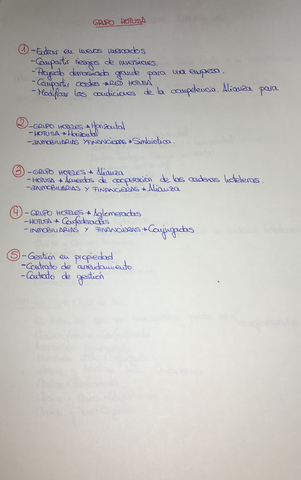 GRUPO HOTUSA
① - Entrar en nuevos mercados
- Compartir riesgos de inversiones
- Proyecto demasiado grande para una empresa.
- Compartir costes → RED HOTUSA
- Modificar las condiciones de la competencia. Alianza para
② - GRUPO HOTELES → Horizontal
- HOTUSA → Horizontal
- INMOBILIARIAS Y FINANCIERAS → Simbiotica.
③ - GRUPO HOTELES → Alianza
- HOTUSA → Acuerdos de cooperación de las cadenas hoteleras.
- INMOBILIARIAS Y FINANCIERAS → Alianza
④ - GRUPO HOTELES → Aglomeradas
- HOTUSA → Confederadas
- INMOBILIARIAS Y FINANCIERAS → Conjugadas
⑤ - Gestión en propiedad
- Contrato de arrendamiento
- Contrato de gestión